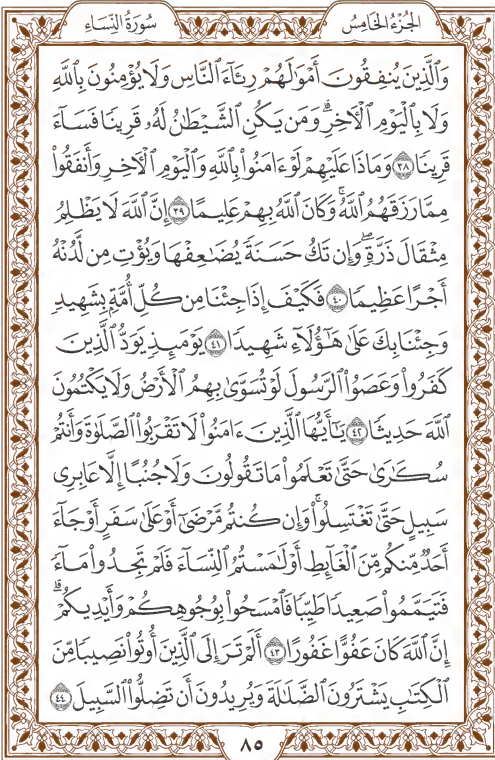 سُورَةُ النِّسَاءِ
الجُزْءُ الخَامِسُ
وَٱلَّذِينَ يُنفِقُونَ أَمْوَٰلَهُمْ رِئَآءَ ٱلنَّاسِ وَلَا يُؤْمِنُونَ بِٱللَّهِ
وَلَا بِٱلْيَوْمِ ٱلْءَاخِرِۗ وَمَن يَكُنِ ٱلشَّيْطَٰنُ لَهُۥ قَرِينًا فَسَآءَ
قَرِينًا ٣٨ وَمَاذَا عَلَيْهِمْ لَوْ ءَامَنُوا۟ بِٱللَّهِ وَٱلْيَوْمِ ٱلْءَاخِرِ وَأَنفَقُوا۟
مِمَّا رَزَقَهُمُ ٱللَّهُۚ وَكَانَ ٱللَّهُ بِهِمْ عَلِيمًا ٣٩ إِنَّ ٱللَّهَ لَا يَظْلِمُ
مِثْقَالَ ذَرَّةٍۖ وَإِن تَكُ حَسَنَةً يُضَٰعِفْهَا وَيُؤْتِ مِن لَّدُنْهُ
أَجْرًا عَظِيمًا ٤٠ فَكَيْفَ إِذَا جِئْنَا مِن كُلِّ أُمَّةٍۭ بِشَهِيدٍ
وَجِئْنَا بِكَ عَلَىٰ هَٰٓؤُلَآءِ شَهِيدًا ٤١ يَوْمَئِذٍ يَوَدُّ ٱلَّذِينَ
كَفَرُوا۟ وَعَصَوُا۟ ٱلرَّسُولَ لَوْ تُسَوَّىٰ بِهِمُ ٱلْأَرْضُ وَلَا يَكْتُمُونَ
ٱللَّهَ حَدِيثًا ٤٢ يَٰٓأَيُّهَا ٱلَّذِينَ ءَامَنُوا۟ لَا تَقْرَبُوا۟ ٱلصَّلَوٰةَ وَأَنتُمْ
سُكَٰرَىٰ حَتَّىٰ تَعْلَمُوا۟ مَا تَقُولُونَ وَلَا جُنُبًا إِلَّا عَابِرِى
سَبِيلٍ حَتَّىٰ تَغْتَسِلُوا۟ۚ وَإِن كُنتُم مَّرْضَىٰٓ أَوْ عَلَىٰ سَفَرٍ أَوْ جَآءَ
أَحَدٌ مِّنكُم مِّنَ ٱلْغَآئِطِ أَوْ لَٰمَسْتُمُ ٱلنِّسَآءَ فَلَمْ تَجِدُوا۟ مَآءً
فَتَيَمَّمُوا۟ صَعِيدًا طَيِّبًا فَٱمْسَحُوا۟ بِوُجُوهِكُمْ وَأَيْدِيكُمْۗ
إِنَّ ٱللَّهَ كَانَ عَفُوًّا غَفُورًا ٤٣ أَلَمْ تَرَ إِلَى ٱلَّذِينَ أُوتُوا۟ نَصِيبًا مِّنَ
ٱلْكِتَٰبِ يَشْتَرُونَ ٱلضَّلَٰلَةَ وَيُرِيدُونَ أَن تَضِلُّوا۟ ٱلسَّبِيلَ ٤٤
٨٥